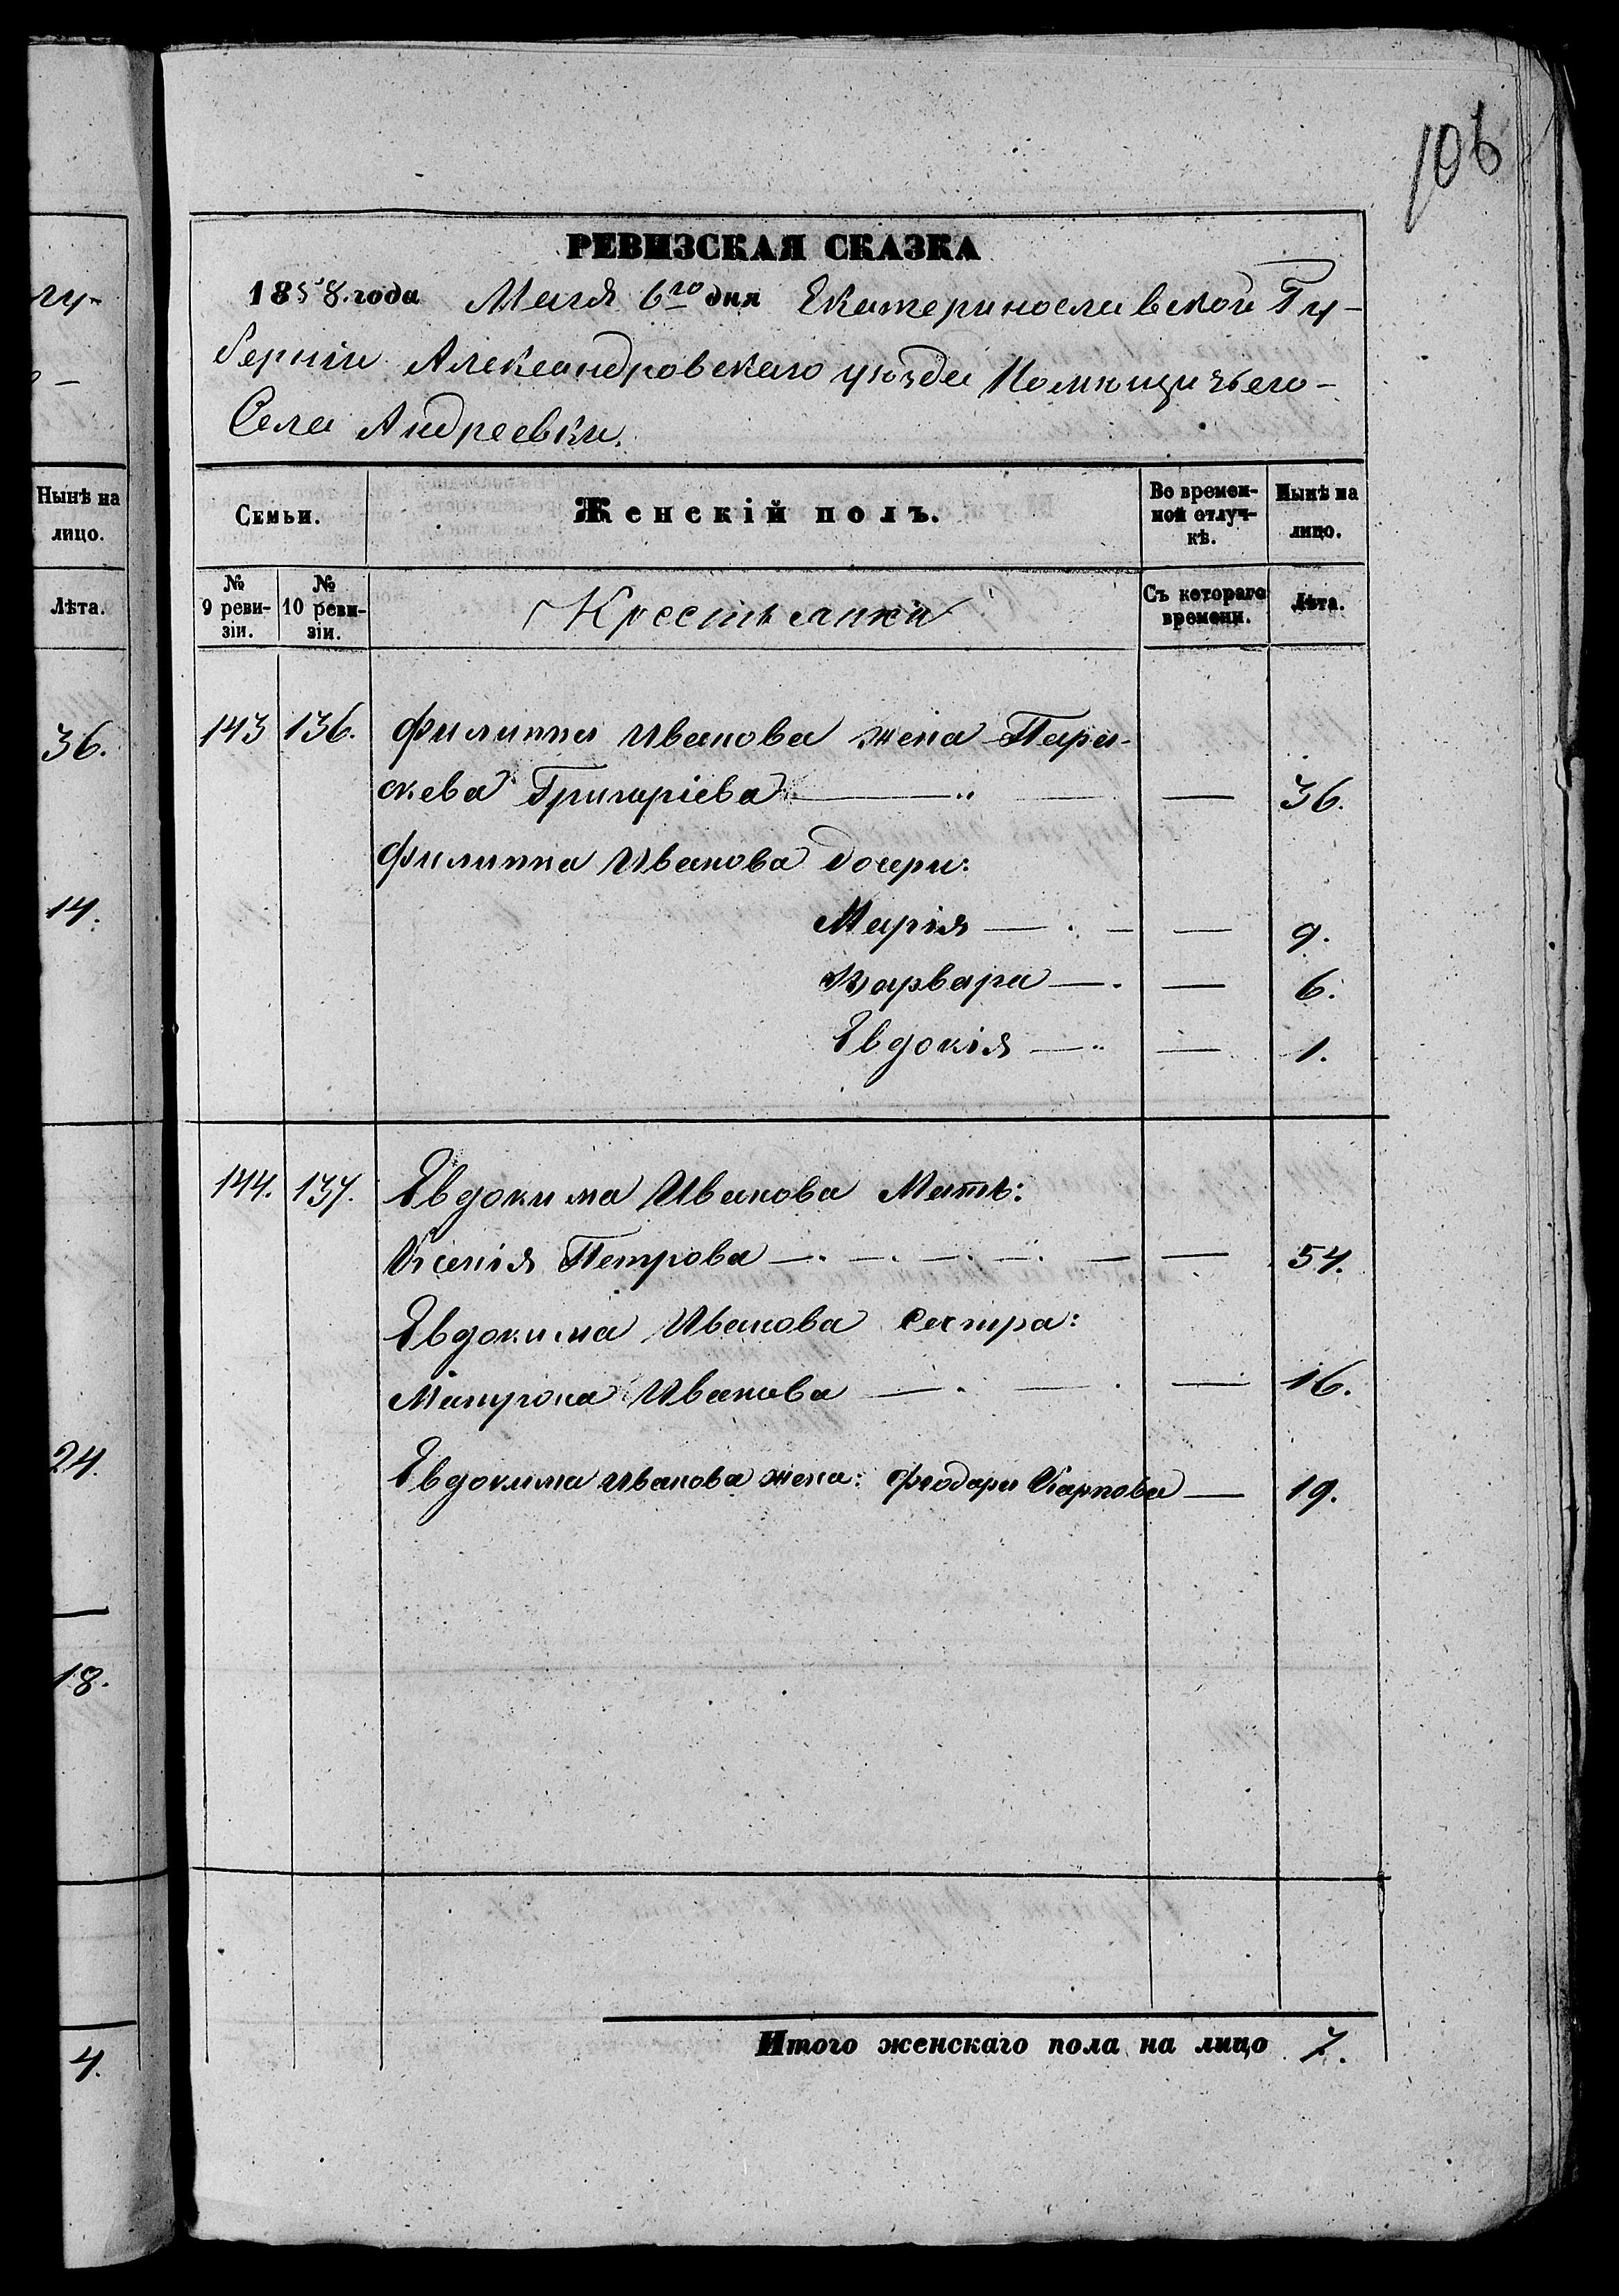 106
РЕВИЗСКАЯ СКАЗКА
1858. года Мая 6го дня Екатеринославской Гу-
берніи Александровскаго уѣзда Помѣщичьяго
Села Андреевки.
Семьи.
Женскій полъ.
Во времен-
ной отлуч-
кѣ.
Нынѣ на
лицо.
№
9 реви-
зіи.
№
10 реви-
зіи.
Крестьянки
Съ котораго
времени.
Лѣта.
143 136. Филиппа Иванова жена Пара-
скева Григоріева — 36.
Филиппа Иванова дочери:
Марія — 9.
Варвара — 6.
Евдокія — 1.
144. 137. Евдокима Иванова Мать:
Ксенія Петрова — 54.
Евдокима Иванова сестра:
Матрона Иванова — 16.
Евдокима Иванова жена: Феодора Карпова — 19.
Итого женскаго пола на лицо 7.
гу-
Нынѣ на
лицо.
Лѣта.
36.
14.
24.
18.
4.